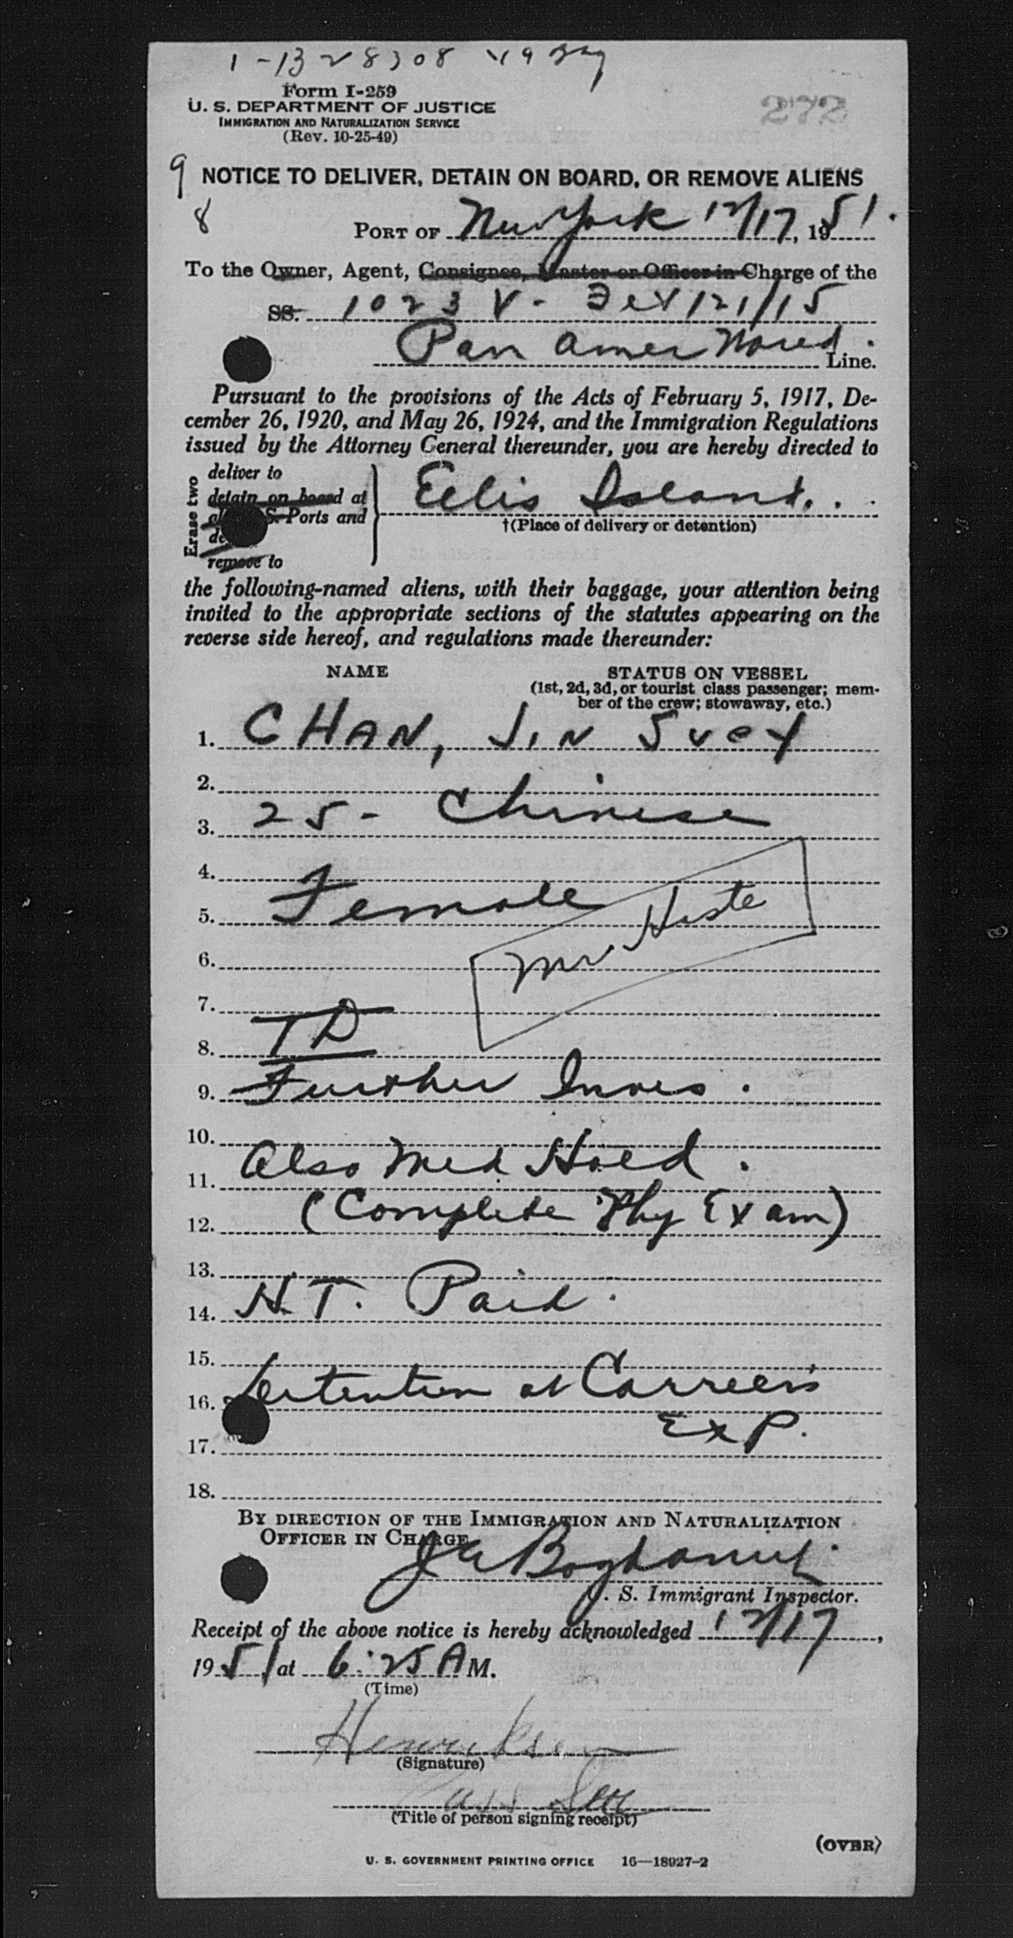 Form I-259
U. S. DEPARTMENT OF JUSTICE
IMMIGRATION AND NATURALIZATION SERVICE
(Rev. 10-25-49)
272
9 NOTICE TO DELIVER, DETAIN ON BOARD, OR REMOVE ALIENS
8
PORT OF New York 12/17, 1951.
To the Owner, Agent, Consignee, Master or Officer in Charge of the
SS. 1023 V - 121/15
Pan Amer Line.
Pursuant to the provisions of the Acts of February 5, 1917, De-
cember 26, 1920, and May 26, 1924, and the Immigration Regulations
issued by the Attorney General thereunder, you are hereby directed to
Erase two
deliver to
detain on board at
Ports and
remove to
Ellis Island.
†(Place of delivery or detention)
the following-named aliens, with their baggage, your attention being
invited to the appropriate sections of the statutes appearing on the
reverse side hereof, and regulations made thereunder:
NAME STATUS ON VESSEL
(1st, 2d, 3d, or tourist class passenger; mem-
ber of the crew; stowaway, etc.)
1. CHAN, JIN Suey
2.
3. 25 - Chinese
4.
5. Female
6. Mr.
7.
8. TD
9. Further Inves.
10.
11. Also Med Hold.
12. (Complete Phy Exam)
13.
14. H.T. Paid.
15.
16. Detention at Carriers
17. Exp.
18.
BY DIRECTION OF THE IMMIGRATION AND NATURALIZATION
OFFICER IN CHARGE
U. S. Immigrant Inspector.
Receipt of the above notice is hereby acknowledged 12/17,
1951 at 6:25 A M.
(Time)
(Signature)
(Title of person signing receipt)
(OVER)
U. S. GOVERNMENT PRINTING OFFICE 16—18927-2